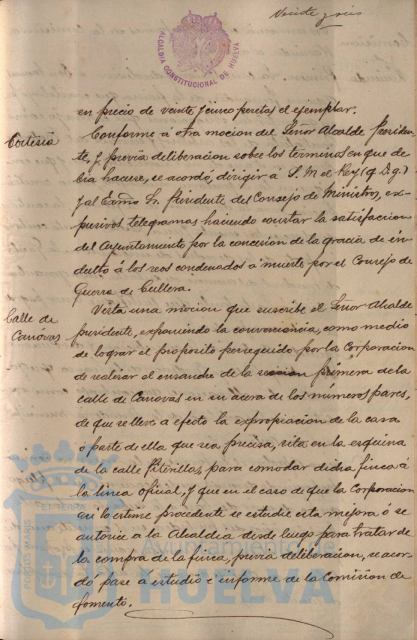 Veinte y seis
ALCALDIA CONSTITUCIONAL DE HUELVA
en precio de veinte y cinco pesetas el ejemplar.
Cortesía
Conforme á otra mocion del Señor Alcalde Presiden-
te, y previa deliberacion sobre los terminos en que de-
bia hacerse, se acordó, dirigir a S. M. el Rey (q. D. g.)
y al Excmo Sr. Presidente del Consejo de Ministros, ex-
presivos telegramas haciendo constar la satisfaccion
del Ayuntamiento por la concesion de la gracia de in-
dulto á los reos condenados a muerte por el Consejo de
Guerra de Cullera.
Calle de
Canóvas
Vista una mocion que suscribe el Señor Alcalde
presidente, exponiendo la conveniencia, como medio
de lograr el proposito perseguido por la Corporacion
de realizar el ensanche de la seccion primera de la
calle de Canovas en su acera de los números pares,
de que se lleve a efecto la expropiacion de la casa
ó parte de ella que sea precisa, sita en la esquina
de la calle para acomodar dicha finca á
la linea oficial, y que en el caso de que la Corporacion
así lo estime procedente se estudie esta mejora ó se
autorice á la Alcaldia desde luego para tratar de
la compra de la finca, previa deliberacion, se acor-
dó pase a estudio e informe de la Comision de
fomento.
Ayuntamiento de
HUELVA